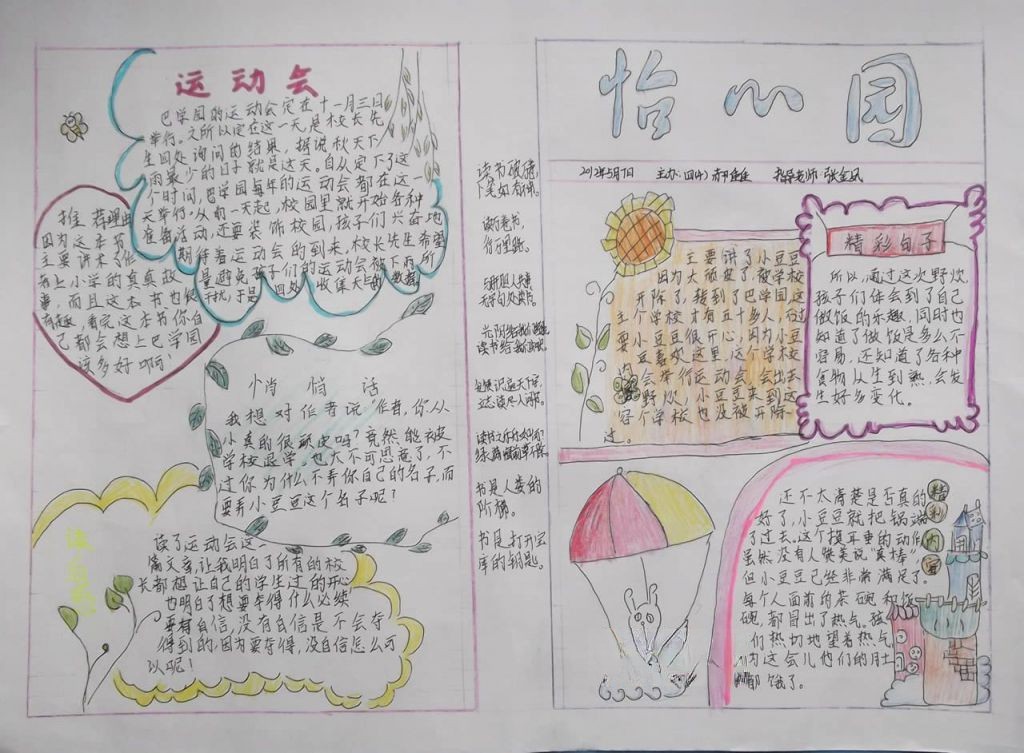 运动会
巴学园的运动会定在十一月三日
举行。之所以定在这一天是校长先
生四处询问的结果，据说秋天下
雨最少的日子就是这天。自从定下了这
个时间，巴学园每年的运动会都在这一
天举行。从前一天起，校园里就开始各种
准备活动，还要装饰校园，孩子们兴奋地
期待着运动会的到来，校长先生希望
量避免孩子们的运动会被下雨所
干扰，于是
推荐理由
因为这本书
主要讲术了作
者上小学的真真故
事，而且这本书也很
有趣，看完这本书你自
己都会想上巴学园
该多好啊！
悄悄话
我想对作者说，作者，你从
小真的很顽皮吗？竟然能被
学校退学，也太不可思意了，不
过你为什么不弄你自己的名子，而
要弄小豆豆这个名子呢？
读后感
读了运动会这一
篇文章，让我明白了所有的校
长都想让自己的学生过的开心，
也明白了想要夺得什么必须
要有自信，没有自信是不会夺
得到的，因为要夺得，没自信怎么可
以呢！
读书破
读万卷书，
行万里路。
读书
书是人类的
阶梯。
书是打开宝
库的钥匙。
怡心园
5月7日 主办：四 指导老师：张
主要讲了小豆豆
因为太顽皮了，被学校
开除了，转到了巴学园，这
个学校才有五十多人，不过
小豆豆很开心，因为小豆
豆喜欢这里，这个学校
会举行运动会，会出去
野炊，小豆豆来到这
个学校也没被开除
过。
精彩句子
所以，通过这次野炊，
孩子们体会到了自己
做饭的乐趣，同时也
知道了做饭是多么不
容易，还知道了各种
食物从生到熟，会发
生好多变化。
精
彩
内
容
还不太清楚是否真的
好了，小豆豆就把锅端
了过去。这个摸耳垂的动作
虽然没有人夸奖说“真棒”，
但小豆豆已经非常满足了。
每个人面前的茶碗和饭
碗，都冒出了热气。孩
们热切地望着热气，
因为这会儿他们的肚
都饿了。